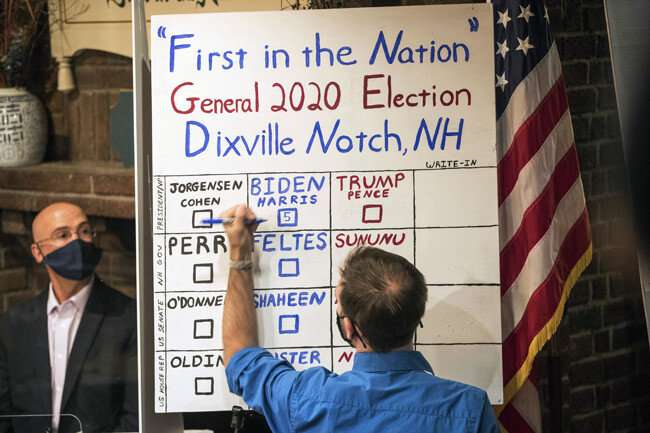 "First in the Nation"
General 2020 Election
Dixville Notch, NH
WRITE-IN
PRESIDENT/VP JORGENSEN COHEN BIDEN HARRIS 5 TRUMP PENCE
NH GOV. PERR FELTES SUNUNU
US SENATE O'DONNE SHAHEEN
US HOUSE REP OLDIN STER N